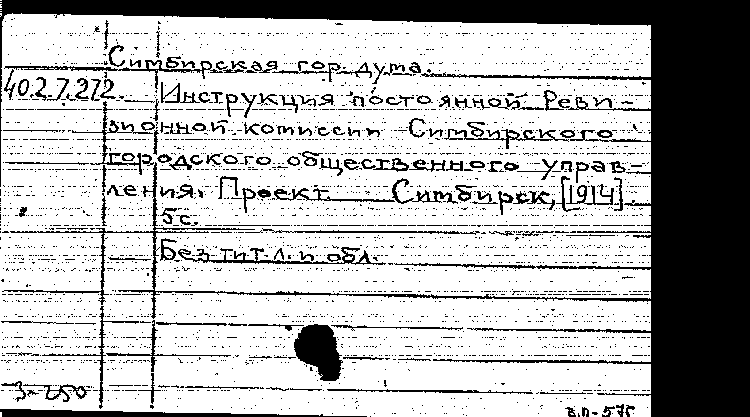 Симбирская гор. дума.
40.2.7.272. Инструкция постоянной Реви-
зионной комиссии Симбирского
городского общественного управ-
ления. Проект. Симбирск, [1914].
5с.
Без тит. л. и обл.
3-250